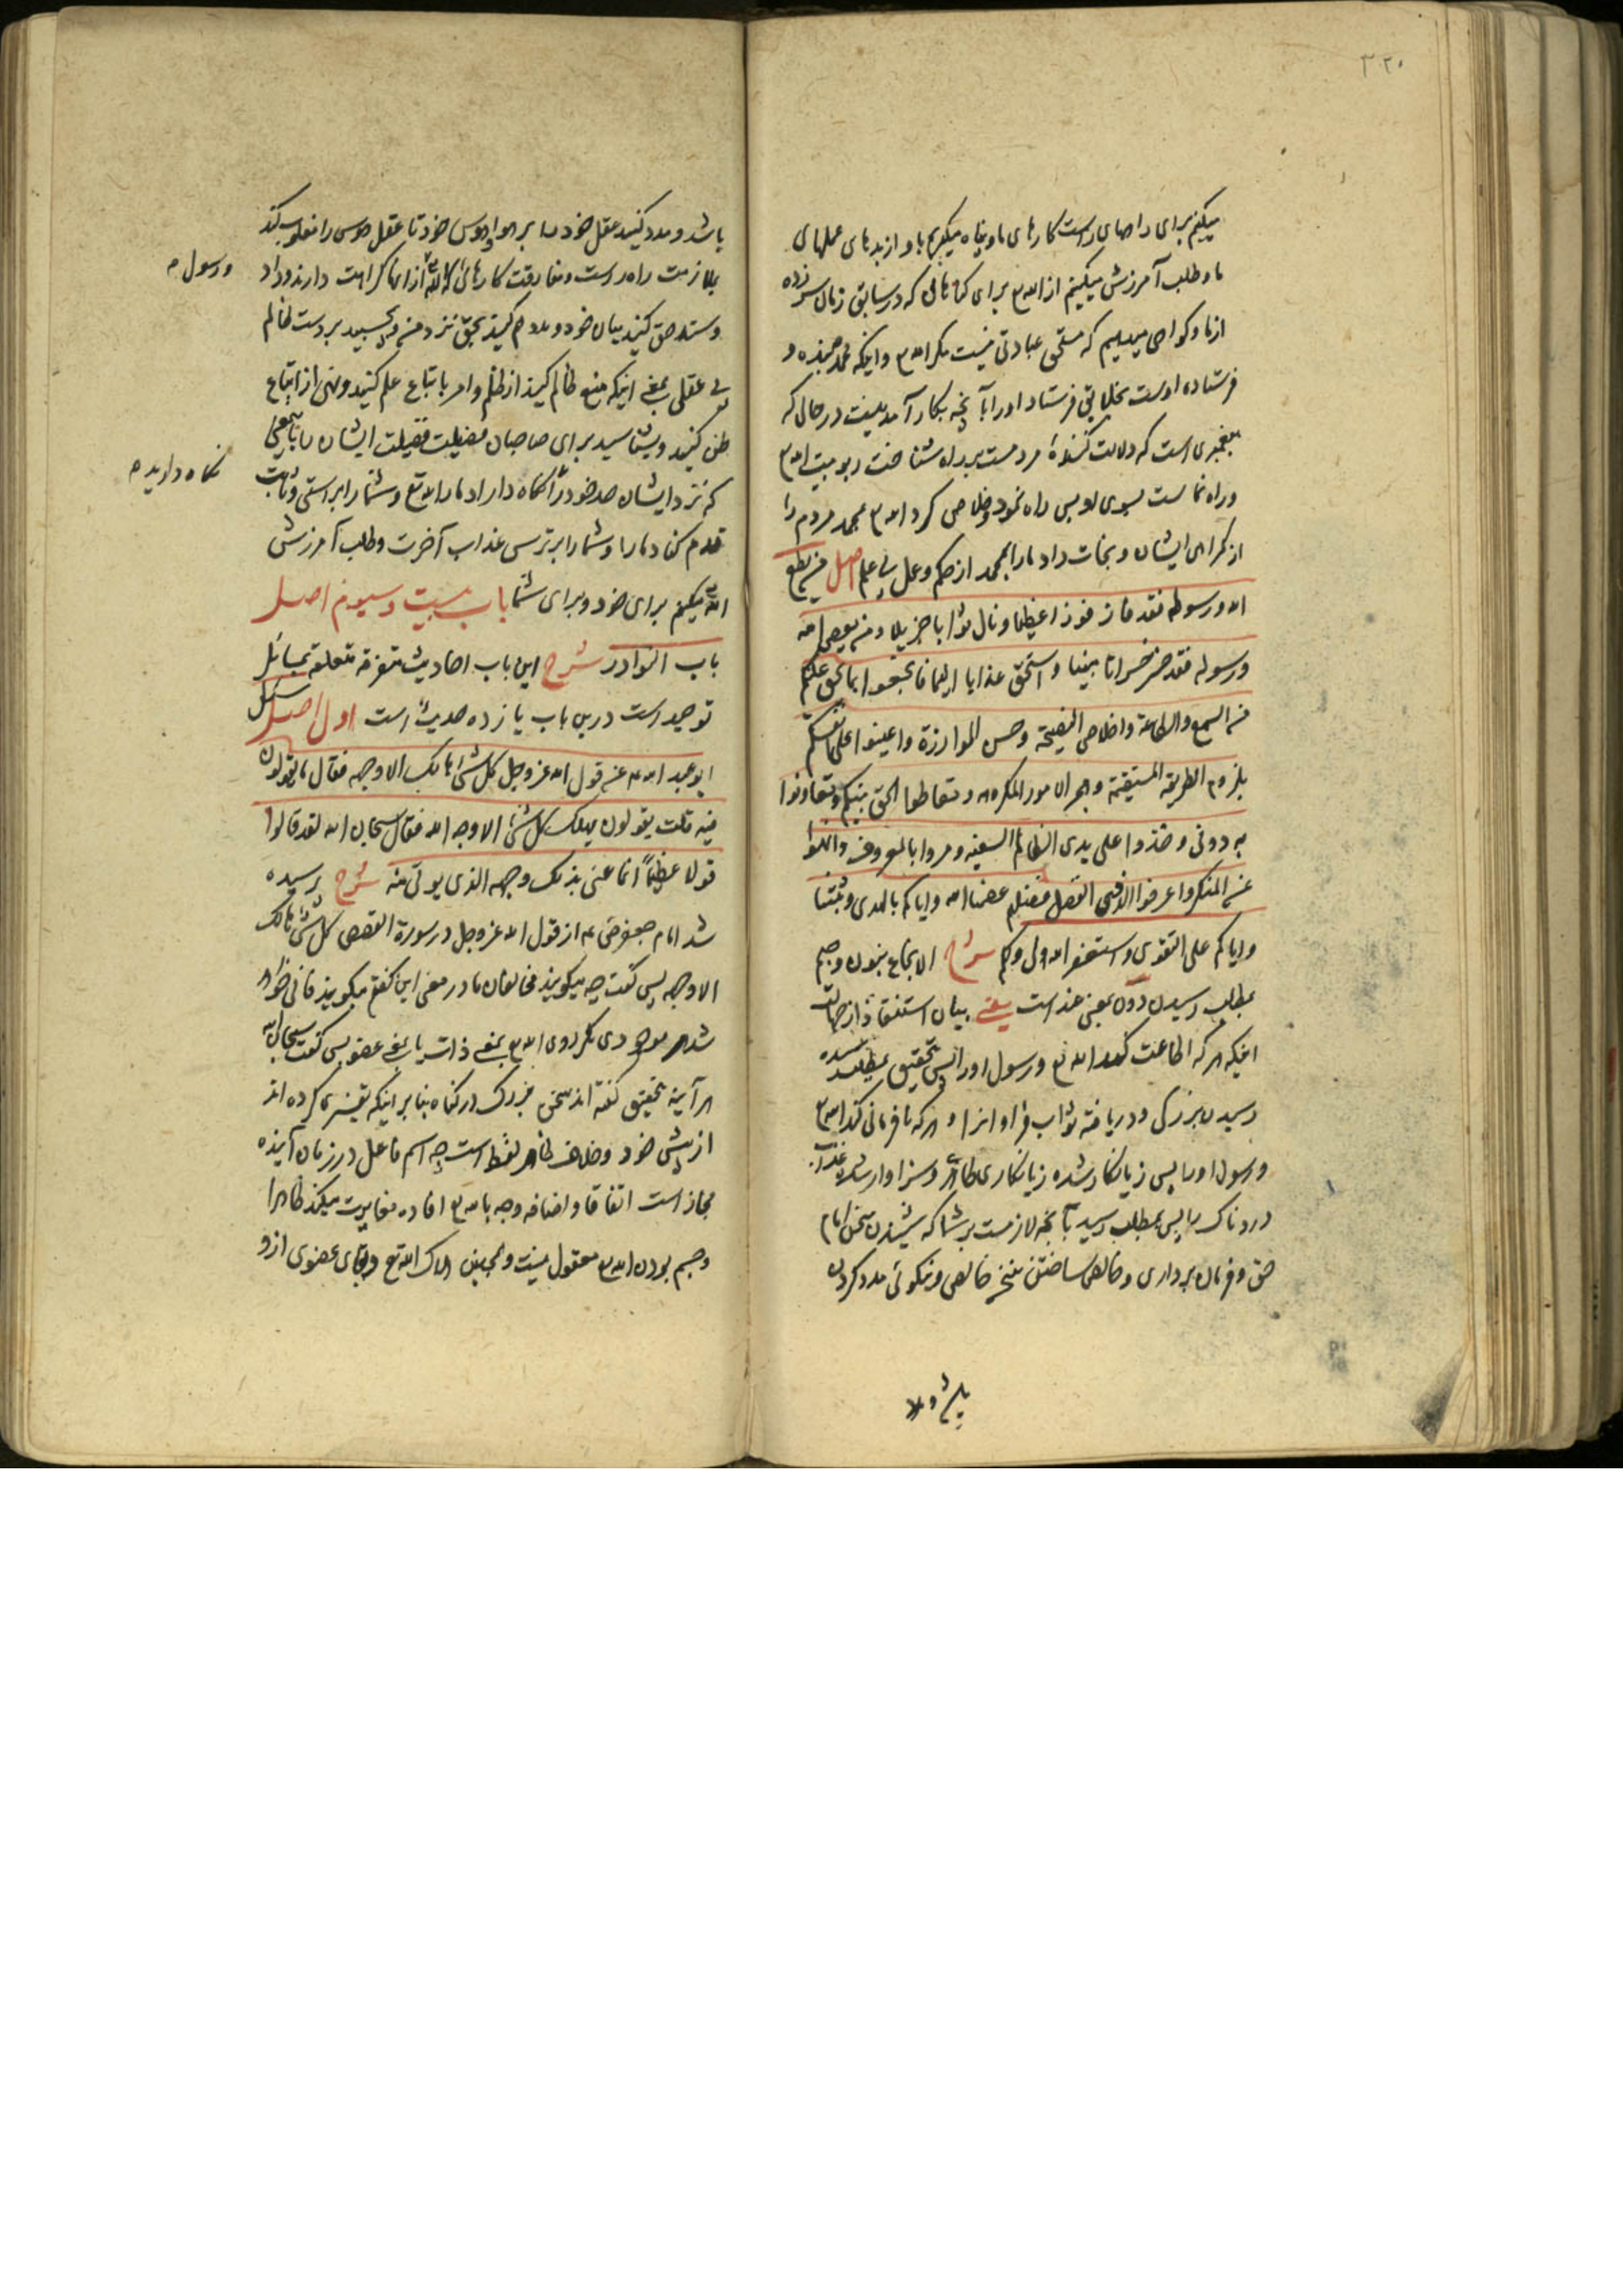 ۳۲۰
میکنم برای راههای راست کارهای ما و پناه میگیریم باو از بدیهای عملهای
ما و طلب آمرزش میکنیم از الله م برای گناهانی که در سابق زمان سر زده
از ما و گواهی میدهیم که مستحق عبادتی نیست مگر الله م و اینکه محمد بنده و
فرستاده اوست بخلایق فرستاد او را بآنچه بکار آمدنیست در حالی که
پیغمبری است که دلالت کننده مردمست بر راه شناخت ربوبیت الله م
و راه نماست بسوی او پس راه نمود و خلاصی کرد الله م بمحمد مردم را
از گمراهی ایشان و نجات داد ما را بمحمد از حکم و عمل بی علم اصل من یطع
الله و رسوله فقد فاز فوزا عظیما و نال ثوابا جزیلا و من یعص الله
و رسوله فقد خسر خسرانا مبینا و استحق عذابا الیما فانجعوا بما یحق علیکم
من السمع و الطاعة و اخلاص النصیحة و حسن الموازرة و اعینوا علی انفسکم
بلزوم الطریقة المستقیمة و هجر الامور المکروهة و تعاطوا الحق بینکم و تعاونوا
به دونی و خذوا علی یدی الظالم السفیه و مروا بالمعروف و انهوا
عن المنکر و اعرفوا لذوی الفضل فضلهم عصمنا الله و ایاکم بالهدی و ثبتنا
و ایاکم علی التقوی و استغفر الله لی و لکم شرح الانجاع بنون و جیم
بمطلب رسیدن دون بمعنی عند است یعنی بیان استنقاذ از جهالت
اینکه هر که اطاعت کند الله تع و رسول او را پس بتحقیق بمطلب رسیده
رسیدن بزرگی و دریافته ثواب فراوانرا و هر که نافرمانی کند الله م
و رسول او را پس زیانکار شده زیانکاری ظاهر و سزاوار شده عذاب
دردناک را پس بمطلب رسید بآنچه لازمست بر شما که شنیدن سخن امام
حق و فرمان برداری و خالص ساختن سخن خالص و نیکوئی مدد کردن
باشد و مدد کنید عقل خود را بر هوا و هوس خود تا عقل هوس را مغلوب کند
بملازمت راه راست و مفارقت کارهائی که الله تع از آنها کراهت دارند و داد
و رسول م
و ستد حق کنید میان خود و مدد هم کنید بحق نزد من و بچسبید بر دست ظالم
بی عقلی بمعنی اینکه منع ظالم کنید از ظلم و امر باتباع علم کنید و نهی از اتباع
ظن کنید و بشناسید برای صاحبان فضیلت فضیلت ایشان را بمعنی
که نزد ایشان حد خود را نگاه داراد ما را الله تع و شما را براستی و ثابت
نگاه دارید م
قدم کناد ما را و شما را بر ترس عذاب آخرت و طلب آمرزش
الله میکنم برای خود و برای شما باب بیست و سیوم اصل
باب النوادر شرح این باب احادیث متفرقه متعلقه بمسائل
توحید است درین باب یازده حدیث است اول اصل سئل
ابو عبد الله ع عن قول الله عز و جل کل شئ هالک الا وجهه فقال ما یقولون
فیه قلت یقولون یهلک کل شئ الا وجه الله فقال سبحان الله لقد قالوا
قولا عظیما انما عنی بذلک وجهه الذی یؤتی منه شرح پرسیده
شد امام جعفر ع از قول الله عز و جل در سورة القصص کل شئ هالک
الا وجهه پس گفت چه میگویند مخالفان ما در معنی این گفتم میگویند فانی خواهد
شد هر موجودی مگر روی الله م بمعنی ذات یا بمعنی عضو پس گفت سبحان الله
هر آینه بتحقیق گفته اند سخن بزرگ در گناه بنا بر اینکه تفسیری کرده اند
از پیش خود و خلاف ظاهر لفظ است چه اسم فاعل در زمان آینده
مجاز است اتفاقا و اضافه وجه بالله م افاده مغایرت میکند ظاهرا
و جسم بودن الله م معقول نیست و همچنین هلاک الله تع و بقای عضوی ازو